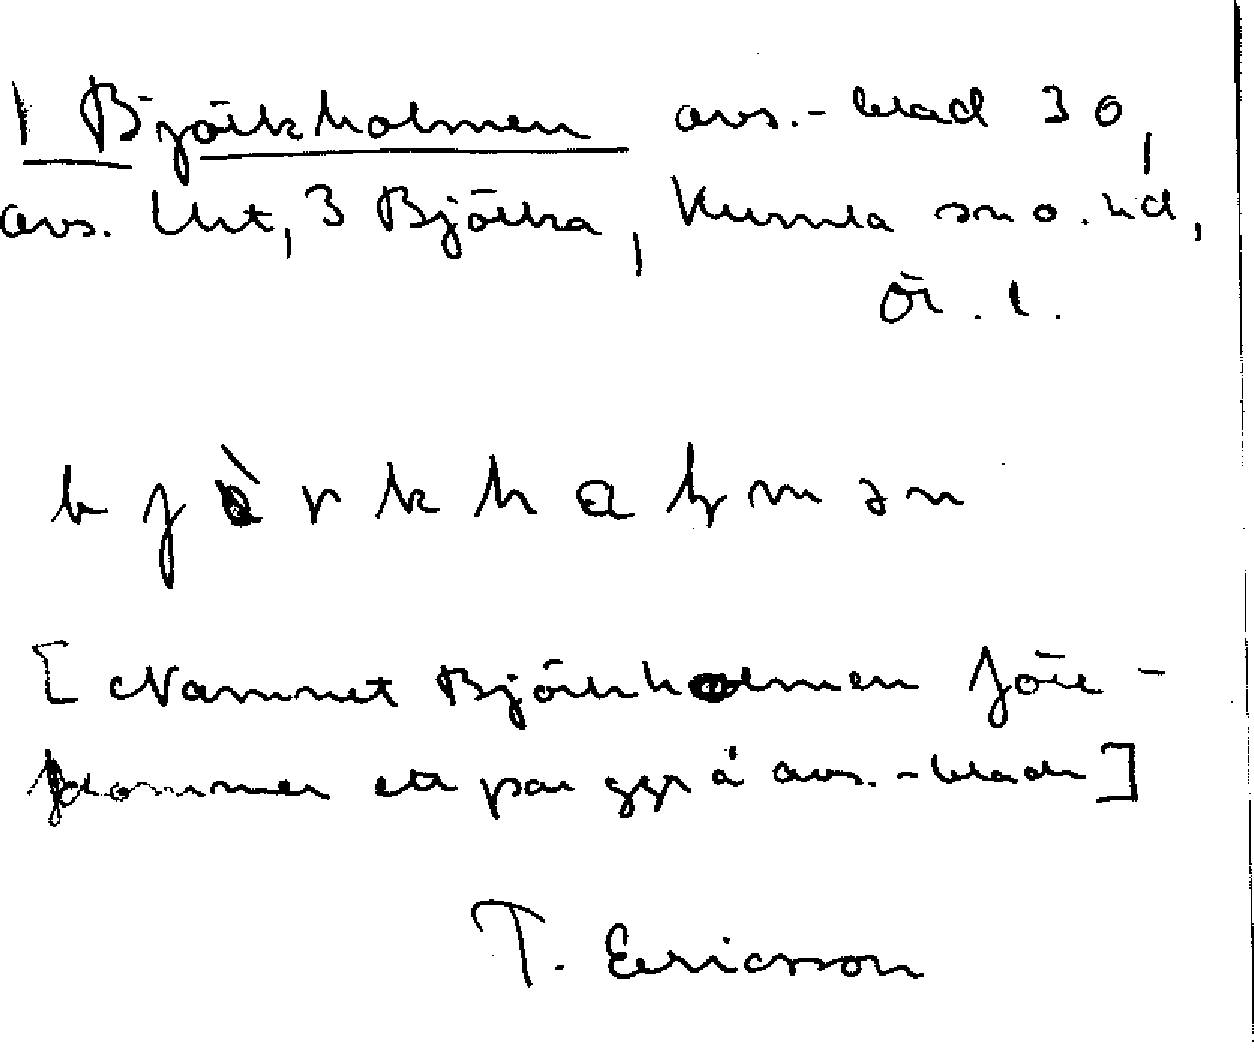 1 Björkholmen avs.-blad 30,
avs. Urt, 3 Björka, Kumla sn o. hd,
Ör. l.
b j ö̀ r k h a ɫ m ə n
[Namnet Björkholmen före-
kommer ett par ggr å avs.-blade]
T. Ericsson